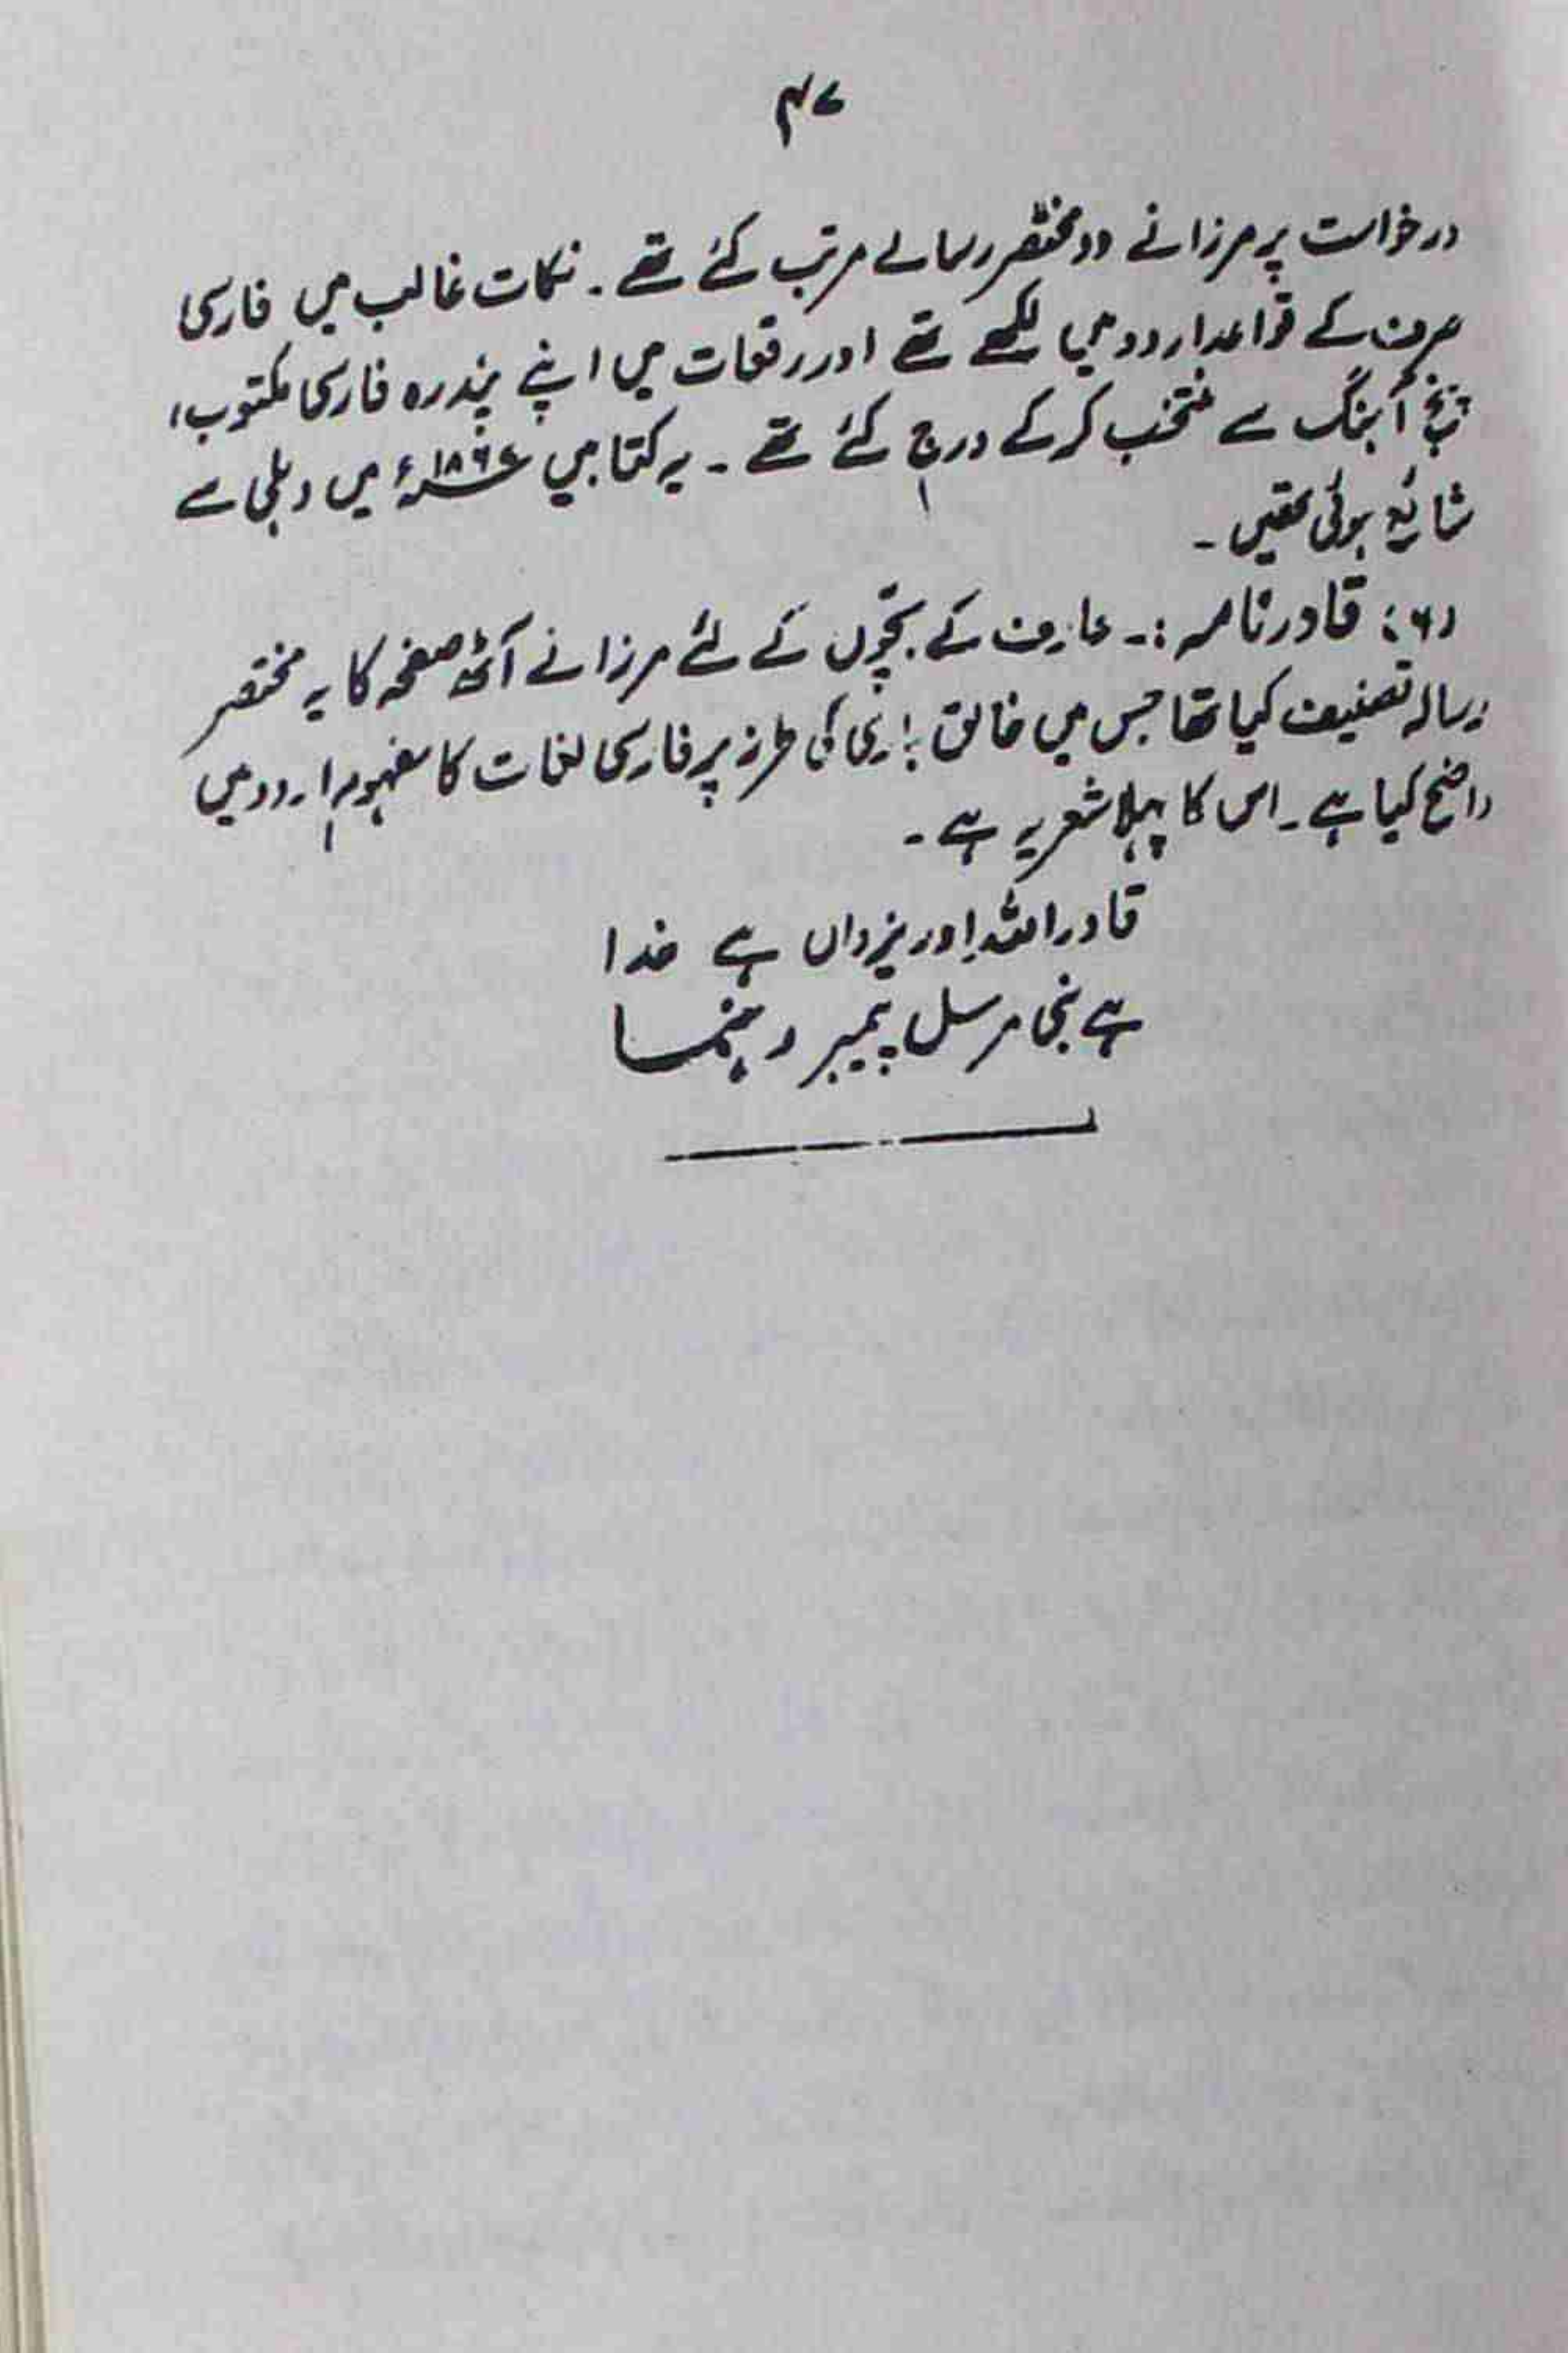 ۴۷
درخواست پر مرزا نے دو مختصر رسالے مرتب کئے تھے۔ نکات غالب میں فارسی
صرف کے قواعد اردو میں لکھے تھے اور رقعات میں اپنے پندرہ فارسی مکتوب،
پنج آہنگ سے منتخب کرکے درج کئے تھے۔ یہ کتابیں ۱۸۶۷ء میں دہلی سے
شائع ہوئی تھیں۔
(۶) قادر نامہ:۔ عارف کے بچّوں کے لئے مرزا نے آٹھ صفحہ کا یہ مختصر
رسالہ تصنیف کیا تھا جس میں خالق باری کی طرز پر فارسی لغات کا مفہوم اردو میں
واضح کیا ہے۔ اس کا پہلا شعر یہ ہے۔
قادر اللہ اور یزداں ہے خدا
ہے نبی مرسل پیمبر رہنما